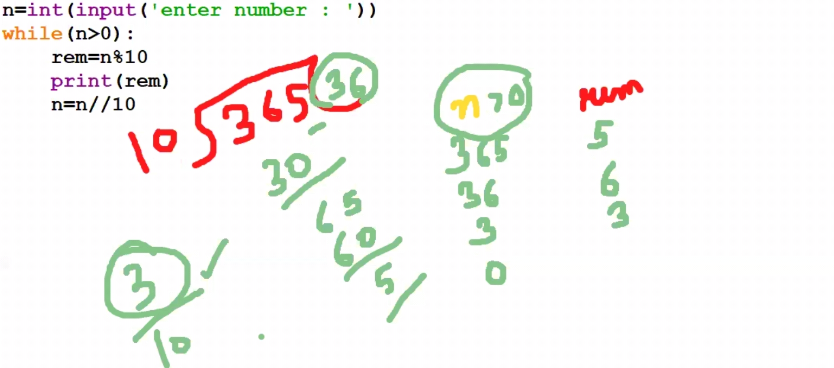 n=int(input('enter number : '))
while(n>0):
rem=n%10
print(rem)
n=n//10
10 365 36
30
65
60
5
3
10
n>0
365
36
3
0
rem
5
6
3